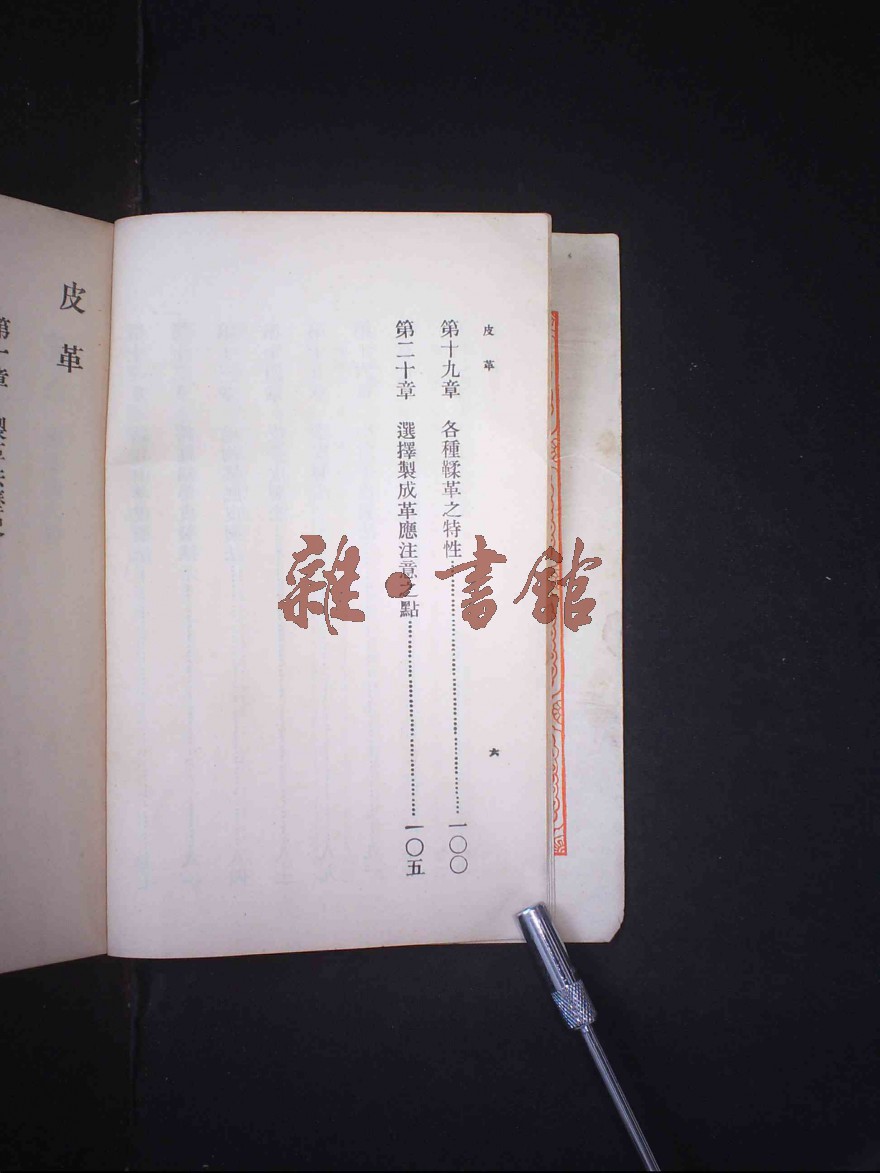 皮革
六
第十九章　各種鞣革之特性……一〇〇
第二十章　選擇製成革應注意之點……一〇五
皮革
第一章　製革
雜·書館